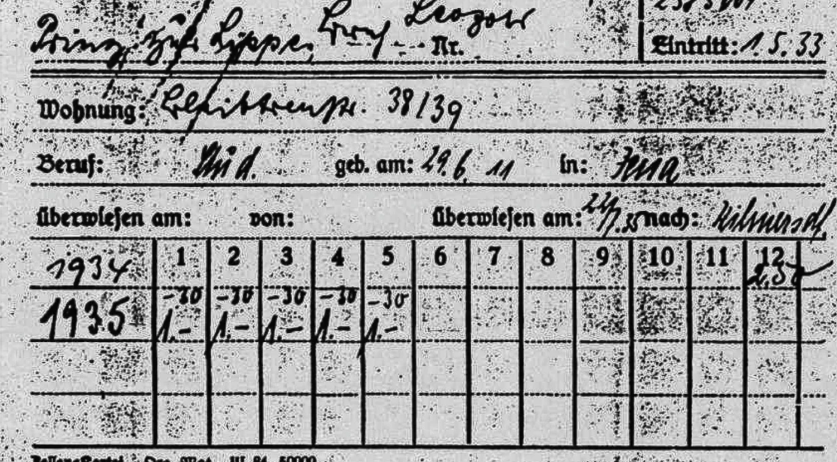 Prinz zur Lippe, Bernh. Leopold Nr. Eintritt: 1.5.33
Wohnung: 38/39
Beruf: Stud. geb. am: 29.6.11 in: Jena
überwiesen am: von: überwiesen am: nach: Wilmersdf.
1934 1 2 3 4 5 6 7 8 9 10 11 12
2.50
-30 -30 -30 -30 -30
1935 1.- 1.- 1.- 1.- 1.-